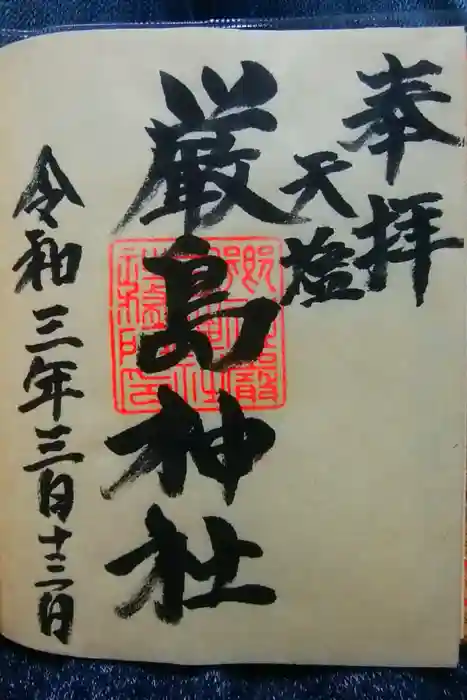 奉拝
天燈
厳島神社
令和三年三月十二日